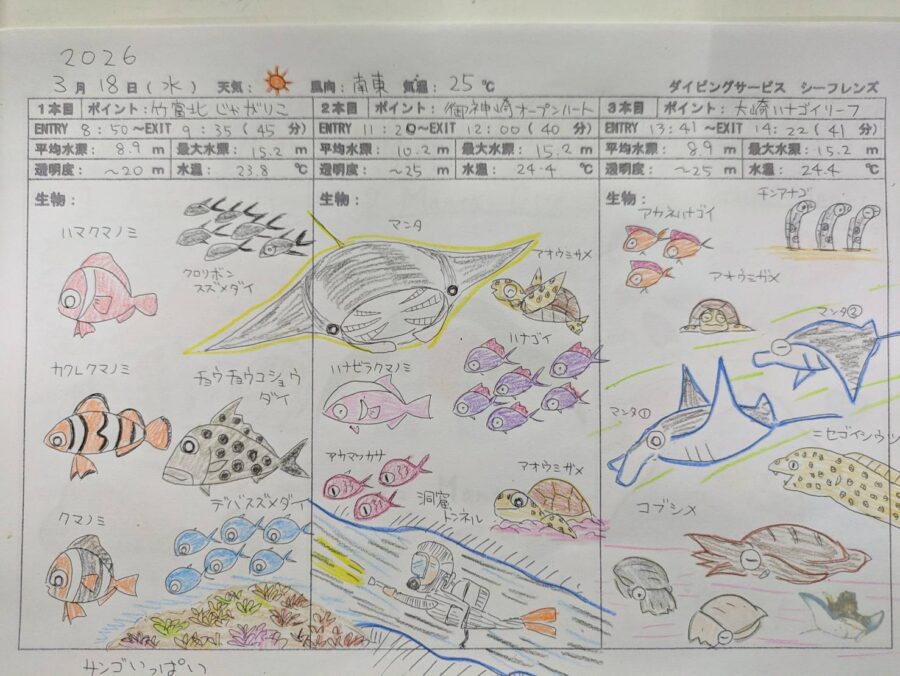 2026
3月18日(水) 天気: 風向: 南東 気温: 25℃ ダイビングサービス シーフレンズ
1本目 ポイント: 竹富北 じゃがりこ
ENTRY 8:50~EXIT 9:35(45 分)
平均水深: 8.9 m 最大水深: 15.2 m
透明度: ~20 m 水温: 23.8 ℃
生物:
ハマクマノミ
クロリボン
スズメダイ
カクレクマノミ
チョウチョウコショウ
ダイ
クマノミ
デバスズメダイ
サンゴいっぱい
2本目 ポイント: 御神崎オープンハート
ENTRY 11:20~EXIT 12:00(40 分)
平均水深: 10.2 m 最大水深: 15.2 m
透明度: ~25 m 水温: 24.4 ℃
生物:
マンタ
アオウミガメ
ハナゴイ
ハナビラクマノミ
アカマツカサ
アオウミガメ
洞窟
トンネル
3本目 ポイント: 大崎ハナゴイリーフ
ENTRY 13:41~EXIT 14:22(41 分)
平均水深: 8.9 m 最大水深: 15.2 m
透明度: ~25 m 水温: 24.4 ℃
生物:
アカネハナゴイ
チンアナゴ
アオウミガメ
マンタ②
マンタ①
ニセゴイシウツ
コブシメ